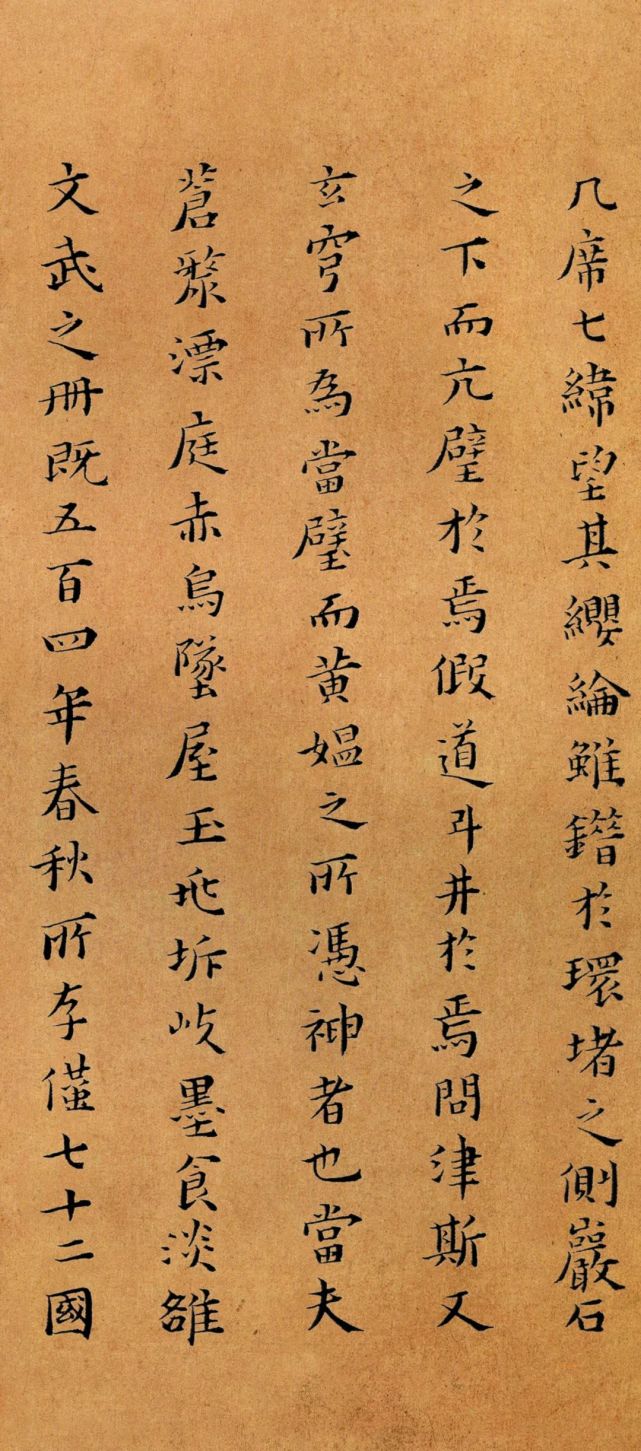 几席七緯望其纓綸雖鐕於環堵之側巖石
之下而亢璧於焉假道斗井於焉問津斯又
玄穹所為當璧而黄媼之所憑神者也當夫
蒼漦漂庭赤烏墜屋玉兆坼岐墨食淡雒
文武之冊既五百四年春秋所存僅七十二國